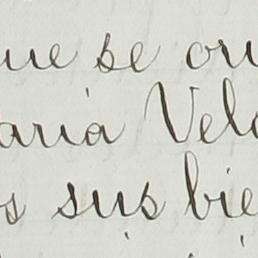 que se ou
aria Vela
s sus bie